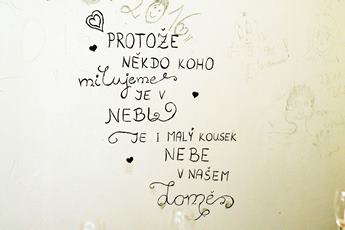 2016
PROTOŽE
NĚKDO KOHO
milujeme
JE V
NEBI
JE I MALÝ KOUSEK
NEBE
V NAŠEM
Domě